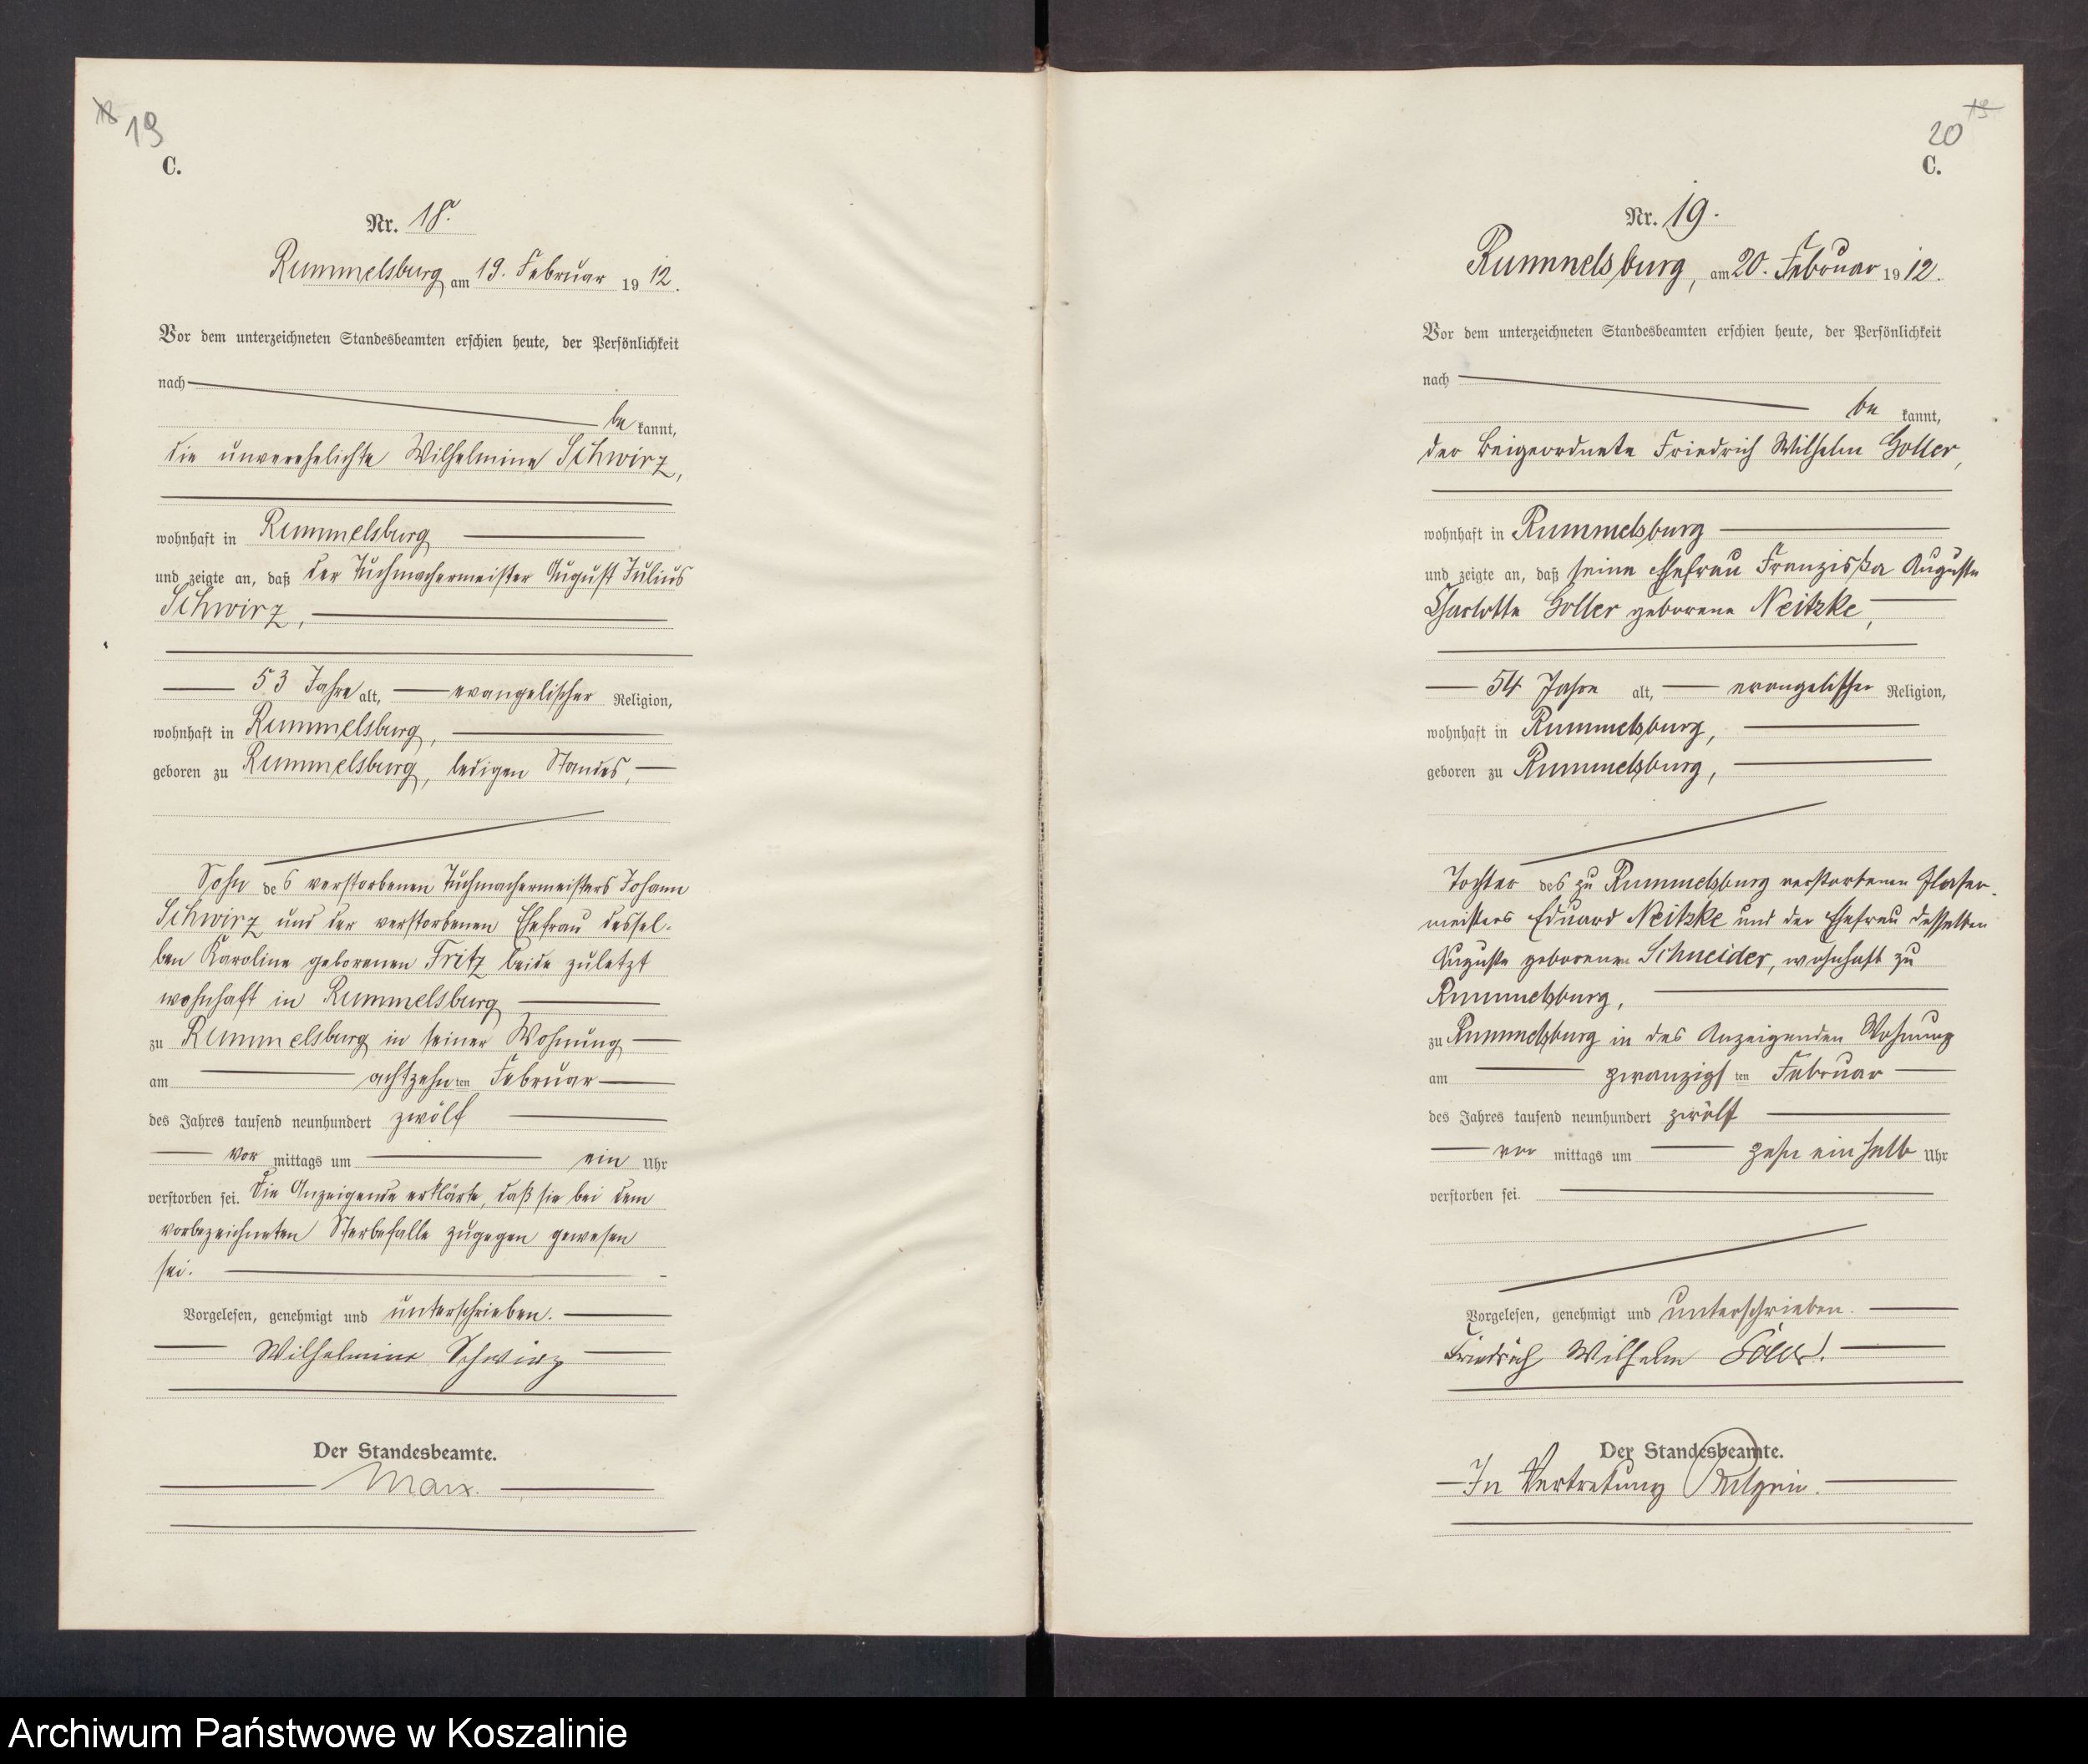 18
19
C.
Nr. 18.
Rummelsburg am 19. Februar 19 12.
Vor dem unterzeichneten Standesbeamten erschien heute, der Persönlichkeit
nach
be kannt,
die unverehelichte Wilhelmine Schwirz,
wohnhaft in Rummelsburg
und zeigte an, daß der Tuchmachermeister August Julius
Schwirz,
53 Jahre alt, evangelischer Religion,
wohnhaft in Rummelsburg,
geboren zu Rummelsburg, ledigen Standes,
Sohn des verstorbenen Tuchmachermeisters Johann
Schwirz und der verstorbenen Ehefrau dessel-
ben Karoline geborenen Fritz beide zuletzt
wohnhaft in Rummelsburg
zu Rummelsburg in seiner Wohnung
am achtzehn ten Februar
des Jahres tausend neunhundert zwölf
vor mittags um ein Uhr
verstorben sei. Die Anzeigende erklärte, daß sie bei dem
vorbezeichneten Sterbefalle zugegen gewesen
sei.
Vorgelesen, genehmigt und unterschrieben.
Wilhelmine Schwirz
Der Standesbeamte.
Marx.
19
20
C.
Nr. 19.
Rummelsburg, am 20. Februar 19 12.
Vor dem unterzeichneten Standesbeamten erschien heute, der Persönlichkeit
nach
be kannt,
der Beigeordnete Friedrich Wilhelm Goller,
wohnhaft in Rummelsburg
und zeigte an, daß seine Ehefrau Franziska Auguste
Charlotte Goller geborene Neitzke,
54 Jahre alt, evangelischer Religion,
wohnhaft in Rummelsburg,
geboren zu Rummelsburg,
Tochter des zu Rummelsburg verstorbenen Glaser-
meisters Eduard Neitzke und der Ehefrau desselben
Auguste geborenen Schneider, wohnhaft zu
Rummelsburg,
zu Rummelsburg in des Anzeigenden Wohnung
am zwanzigs ten Februar
des Jahres tausend neunhundert zwölf
vor mittags um zehn ein halb Uhr
verstorben sei.
Vorgelesen, genehmigt und unterschrieben.
Friedrich Wilhelm
Der Standesbeamte.
In Vertretung
Archiwum Państwowe w Koszalinie